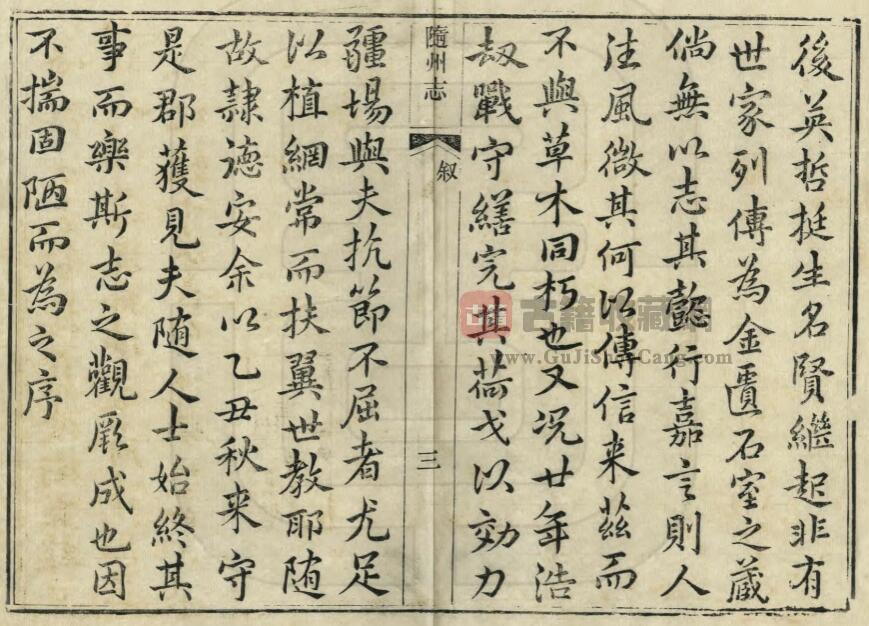 後英哲挺生名賢繼起非有
世家列傳為金匱石室之藏
倘無以志其懿行嘉言則人
往風微其何以傳信来茲而
不與草木同朽也又况廿年浩
劫戰守繕完其荷戈以効力
隨州志
敘
三
疆場與夫抗節不屈者尤足
以植綱常而扶翼世教耶随
故隷德安余以乙丑秋来守
是郡獲見夫随人士始終其
事而樂斯志之觀厥成也因
不揣固陋而為之序
古籍
古籍收藏網
www.GuJiShouCang.com